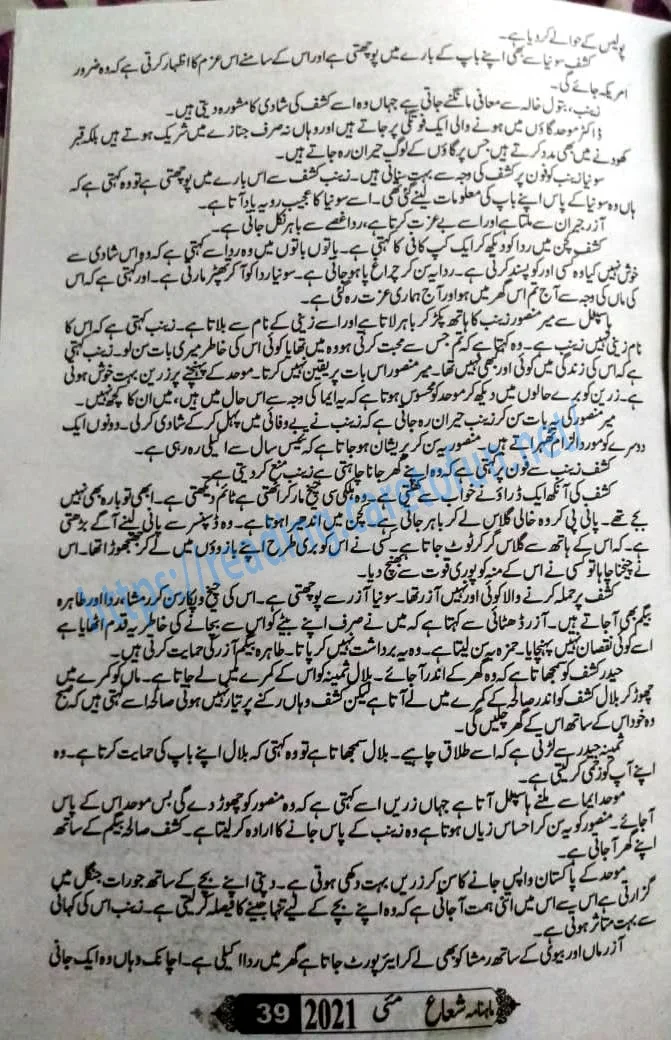 پولیس کے حوالے کر دیا ہے۔
کشف سونیا سے بھی اپنے باپ کے بارے میں پوچھتی ہے اور اس کے سامنے اس عزم کا اظہار کرتی ہے کہ وہ ضرور
امریکہ جائے گی۔
زینب، بتول خالہ سے معافی مانگنے جاتی ہے جہاں وہ اسے کشف کی شادی کا مشورہ دیتی ہیں۔
ڈاکٹر موحد گاؤں میں ہونے والی ایک فوتگی پر جاتے ہیں اور وہاں نہ صرف جنازے میں شریک ہوتے ہیں بلکہ قبر
کھودنے میں بھی مدد کرتے ہیں جس پر گاؤں کے لوگ حیران رہ جاتے ہیں۔
سونیا زینب کو فون پر کشف کی وجہ سے بہت سناتی ہیں۔ زینب کشف سے اس بارے میں پوچھتی ہے تو وہ کہتی ہے کہ
ہاں وہ سونیا کے پاس اپنے باپ کی معلومات لینے گئی تھی۔ اسے سونیا کا عجیب رویہ یاد آتا ہے۔
آزر جبران سے ملتا ہے اور اسے بے عزت کرتا ہے، ردا غصے سے باہر نکل جاتی ہے۔
کشف کچن میں ردا کو دیکھ کر ایک کپ کافی کا کہتی ہے۔ باتوں باتوں میں وہ ردا سے کہتی ہے کہ وہ اس شادی سے
خوش نہیں کیا وہ کسی اور کو پسند کرتی ہے۔ ردا یہ سن کر چراغ پا ہو جاتی ہے۔ سونیا ردا کو آ کر تھپڑ مارتی ہے۔ اور کہتی ہے کہ اس
کی ماں کی وجہ سے آج تم اس گھر میں ہو اور آج ہماری عزت رہ گئی ہے۔
ہاسپٹل سے میر منصور زینب کا ہاتھ پکڑ کر باہر لاتا ہے اور اسے زینی کے نام سے بلاتا ہے۔ زینب کہتی ہے کہ اس کا
نام زینی نہیں زینب ہے۔ وہ کہتا ہے کہ تم جس سے محبت کرتی ہو وہ میں تھا یا کوئی اس کی خاطر میری بات سن لو۔ زینب کہتی
ہے کہ اس کی زندگی میں کوئی اور کبھی نہیں تھا۔ میر منصور اس بات پر یقین نہیں کرتا۔ موحد کے پہنچنے پر زرین بہت خوش ہوتی
ہے۔ زرین کو برے حالوں میں دیکھ کر موحد کو محسوس ہوتا ہے کہ یہ ایما کی وجہ سے اس حال میں ہیں، میں ان کا کچھ نہیں۔
میر منصور کی یہ بات سن کر زینب حیران رہ جاتی ہے کہ زینب نے بے وفائی میں پہل کر کے شادی کر لی۔ دونوں ایک
دوسرے کو مورد الزام ٹھہراتے ہیں۔ منصور یہ سن کر پریشان ہو جاتا ہے کہ تئیس سال سے اکیلی رہ رہی ہے۔
کشف زینب سے فون پر کہتی ہے کہ وہ اپنے گھر جانا چاہتی ہے زینب منع کر دیتی ہے۔
کشف کی آنکھ ایک ڈراؤنے خواب سے کھلتی ہے۔ وہ ہلکی سی چیخ مار کر اٹھتی ہے ٹائم دیکھتی ہے۔ ابھی تو بارہ بھی نہیں
بجے تھے۔ پانی پی کر وہ خالی گلاس لے کر باہر جاتی ہے۔ کچن میں اندھیرا ہوتا ہے۔ وہ ڈسپنسر سے پانی لینے آگے بڑھتی
ہے۔ کہ اس کے ہاتھ سے گلاس گر کر ٹوٹ جاتا ہے۔ کسی نے اس کو بری طرح اپنے بازوؤں میں لے کر جھنجھوڑا تھا۔ اس
نے چیخنا چاہا تو کسی نے اس کے منہ کو پوری قوت سے بھینچ دیا۔
کشف پر حملہ کرنے والا کوئی اور نہیں آزر تھا۔ سونیا آزر سے پوچھتی ہے۔ اس کی چیخ و پکار سن کر رمشا، ردا اور طاہرہ
بیگم بھی آ جاتے ہیں۔ آزر ڈھٹائی سے کہتا ہے کہ میں نے صرف اپنے بیٹے کو اس سے بچانے کی خاطر یہ قدم اٹھایا ہے
اسے کوئی نقصان نہیں پہنچایا۔ حمزہ یہ سن لیتا ہے۔ وہ یہ برداشت نہیں کر پاتا۔ طاہرہ بیگم آزر کی حمایت کرتی ہیں۔
حیدر کشف کو سمجھاتا ہے کہ وہ گھر کے اندر آ جائے۔ بلال ثمینہ کو اس کے کمرے میں لے جاتا ہے۔ ماں کو کمرے میں
چھوڑ کر بلال کشف کو اندر صالحہ کے کمرے میں لے آتا ہے لیکن کشف وہاں رکنے پر تیار نہیں ہوتی صالحہ اسے کہتی ہیں کہ صبح
وہ خود اس کے ساتھ اس کے گھر چلیں گی۔
ثمینہ حیدر سے لڑتی ہے کہ اسے طلاق چاہیے۔ بلال سمجھاتا ہے تو وہ کہتی کہ بلال اپنے باپ کی حمایت کرتا ہے۔ وہ
اپنے آپ کو زخمی کر لیتی ہے۔
موحد ایما سے ملنے ہاسپٹل آتا ہے جہاں زریں اسے کہتی ہے کہ وہ منصور کو چھوڑ دے گی بس موحد اس کے پاس
آ جائے۔ منصور کو یہ سن کر احساس زیاں ہوتا ہے وہ زینب کے پاس جانے کا ارادہ کر لیتا ہے۔ کشف صالحہ بیگم کے ساتھ
اپنے گھر آ جاتی ہے۔
موحد کے پاکستان واپس جانے کا سن کر زریں بہت دکھی ہوتی ہے۔ دیتی اپنے بچے کے ساتھ جو رات جنگل میں
گزارتی ہے اس سے اس میں اتنی ہمت آ جاتی ہے کہ وہ اپنے بچے کے لیے تنہا جینے کا فیصلہ کر لیتی ہے۔ زینب اس کی کہانی
سے بہت متاثر ہوتی ہے۔
آزر ماں اور بیوٹی کے ساتھ رمشا کو بھی لے کر ایئر پورٹ جاتا ہے گھر میں ردا اکیلی ہے۔ اچانک وہاں وہ ایک جانی
ماہنامہ شعاع مئی 2021 39
https://reading.caretofun.net/